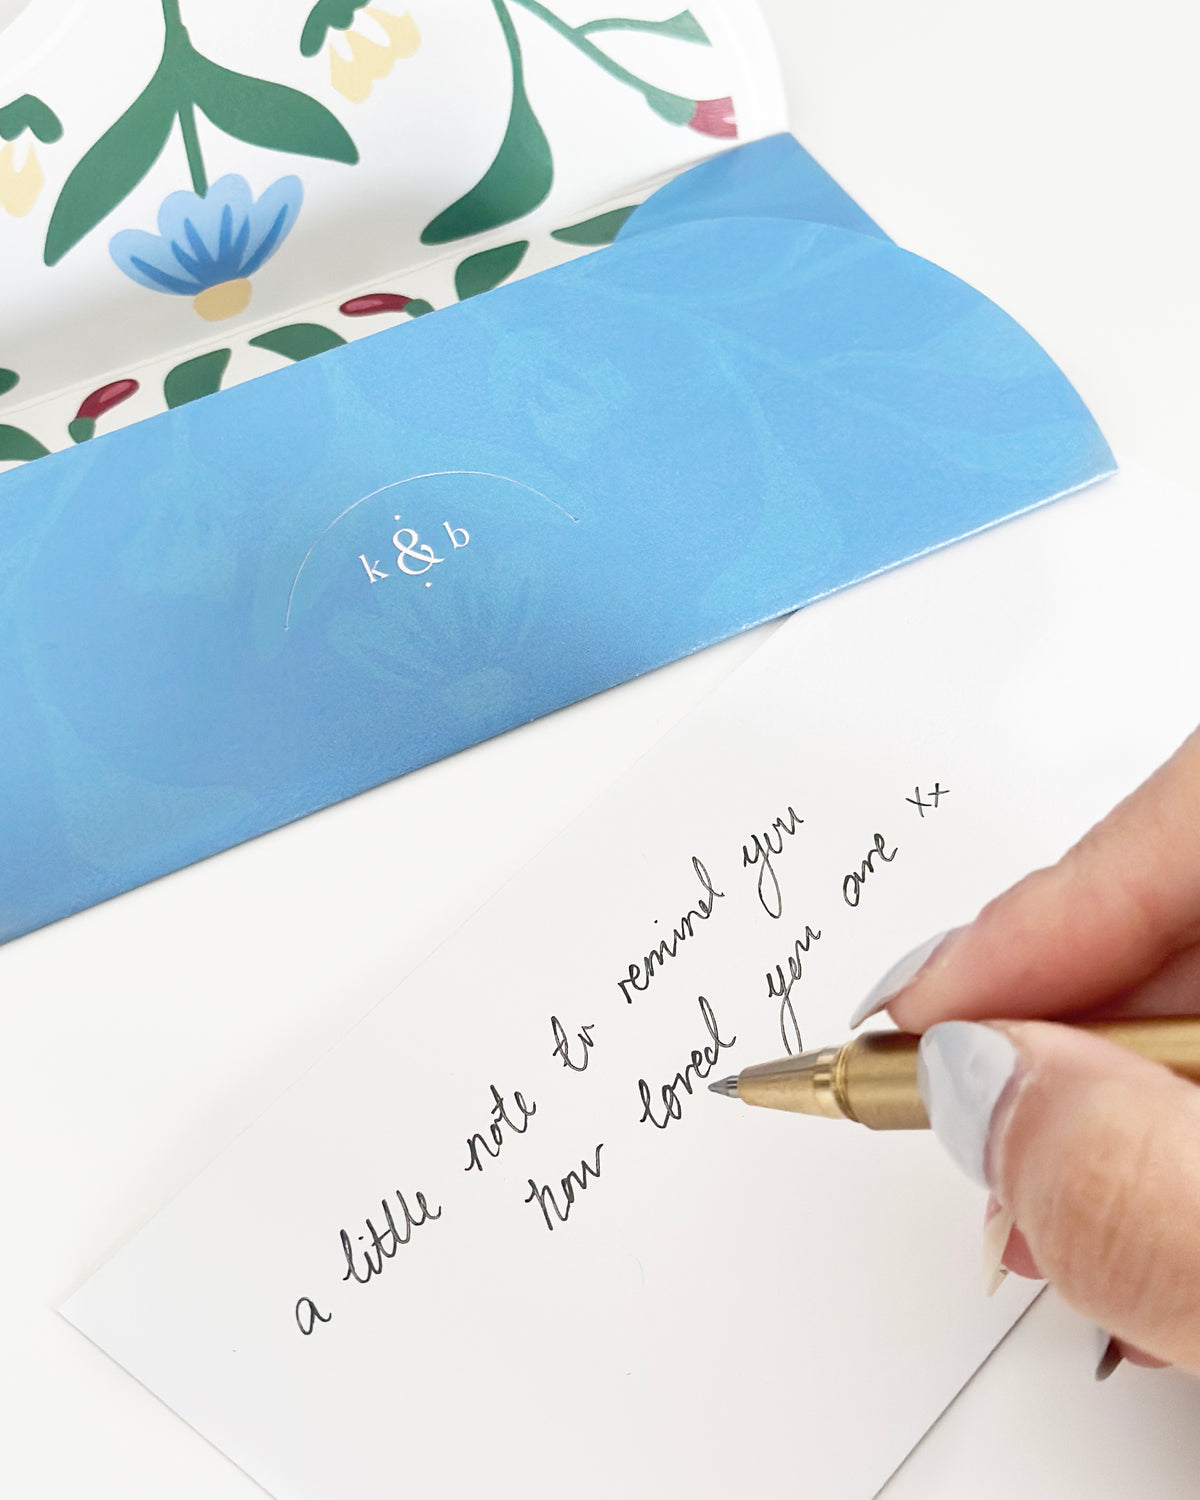 k & b
a little note to remind you
how loved you are xx